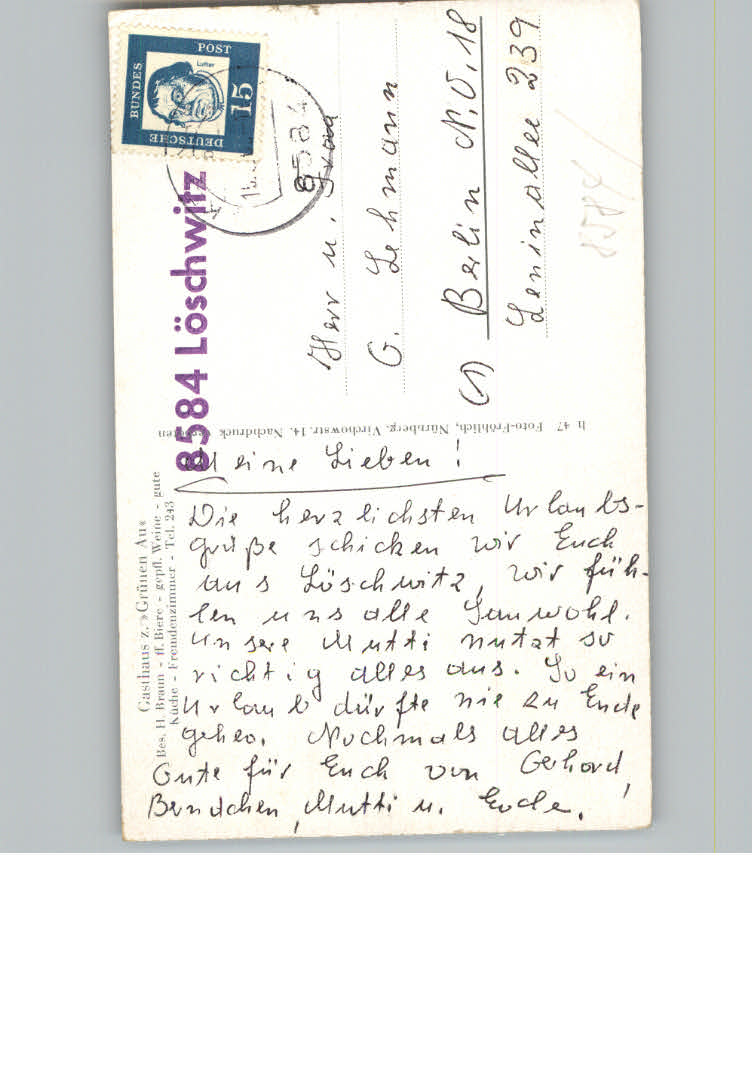 DEUTSCHE
BUNDES
POST
Luther
15
8584
8584 Löschwitz
Herr u. Frau
G. Lehmann
(1) Berlin N.O. 18
Leninallee 239
8584
h 47 Foto-Fröhlich, Nürnberg, Virchowstr. 14. Nachdruck verboten
Gasthaus z. »Grünen Au«
Bes. H. Braun - ff. Biere - gepfl. Weine - gute
Küche - Fremdenzimmer - Tel. 243
Meine Lieben!
Die herzlichsten Urlaubs-
grüße schicken wir Euch
aus Löschwitz, wir füh-
len uns alle Sauwohl.
Unsere Mutti nutzt so
richtig alles aus. So ein
Urlaub dürfte nie zu Ende
gehen. Nochmals alles
Gute für Euch von Gerhard,
Berndchen, Mutti u.